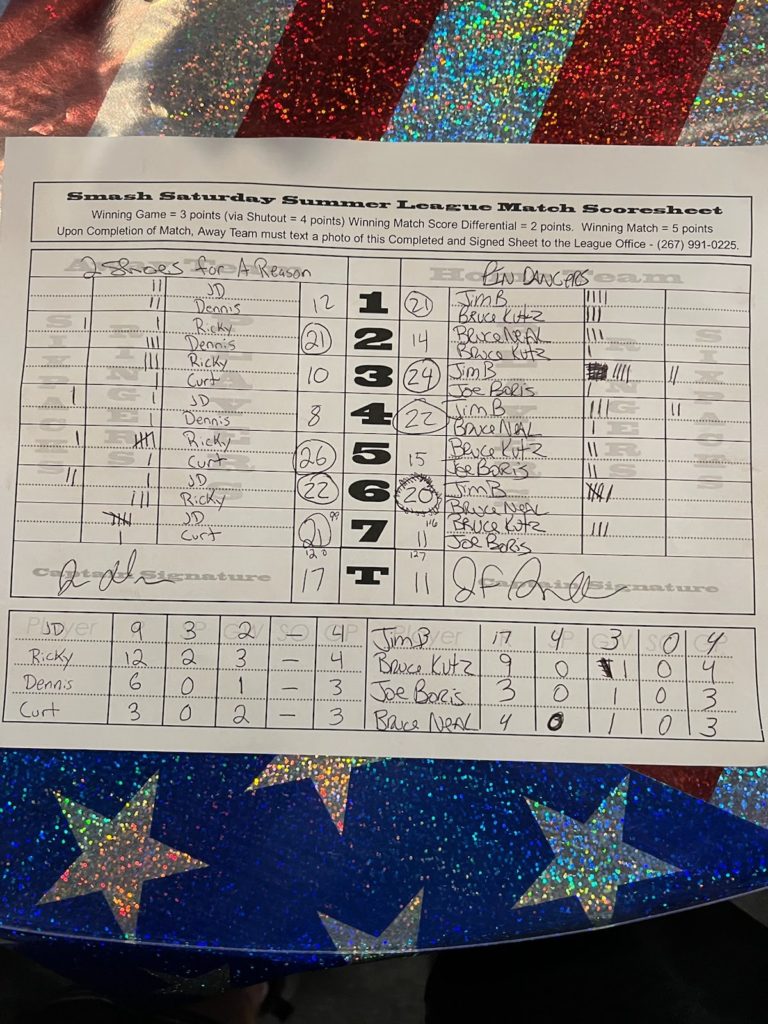 Smash Saturday Summer League Match Scoresheet
Winning Game = 3 points (via Shutout = 4 points) Winning Match Score Differential = 2 points. Winning Match = 5 points
Upon Completion of Match, Away Team must text a photo of this Completed and Signed Sheet to the League Office - (267) 991-0225.
2 Shoes for A Reason Home Team PIN DANCERS
JD 12 1 21 Jim B
Dennis Bruce Kutz
Ricky 21 2 14 Bruce Neal
Dennis Bruce Kutz
Ricky 10 3 24 Jim B
Curt Joe Boris
JD 8 4 22 Jim B
Dennis Bruce Neal
Ricky 26 5 15 Bruce Kutz
Curt Joe Boris
JD 22 6 20 Jim B
Ricky Bruce Neal
JD 21 99 7 11 116 Bruce Kutz
Curt Joe Boris
120 127
Captain Signature 17 T 11 Captain Signature
JD 9 3 2 – 4 Jim B 17 4 3 0 4
Ricky 12 2 3 – 4 Bruce Kutz 9 0 1 0 4
Dennis 6 0 1 – 3 Joe Boris 3 0 1 0 3
Curt 3 0 2 – 3 Bruce Neal 4 0 1 0 3